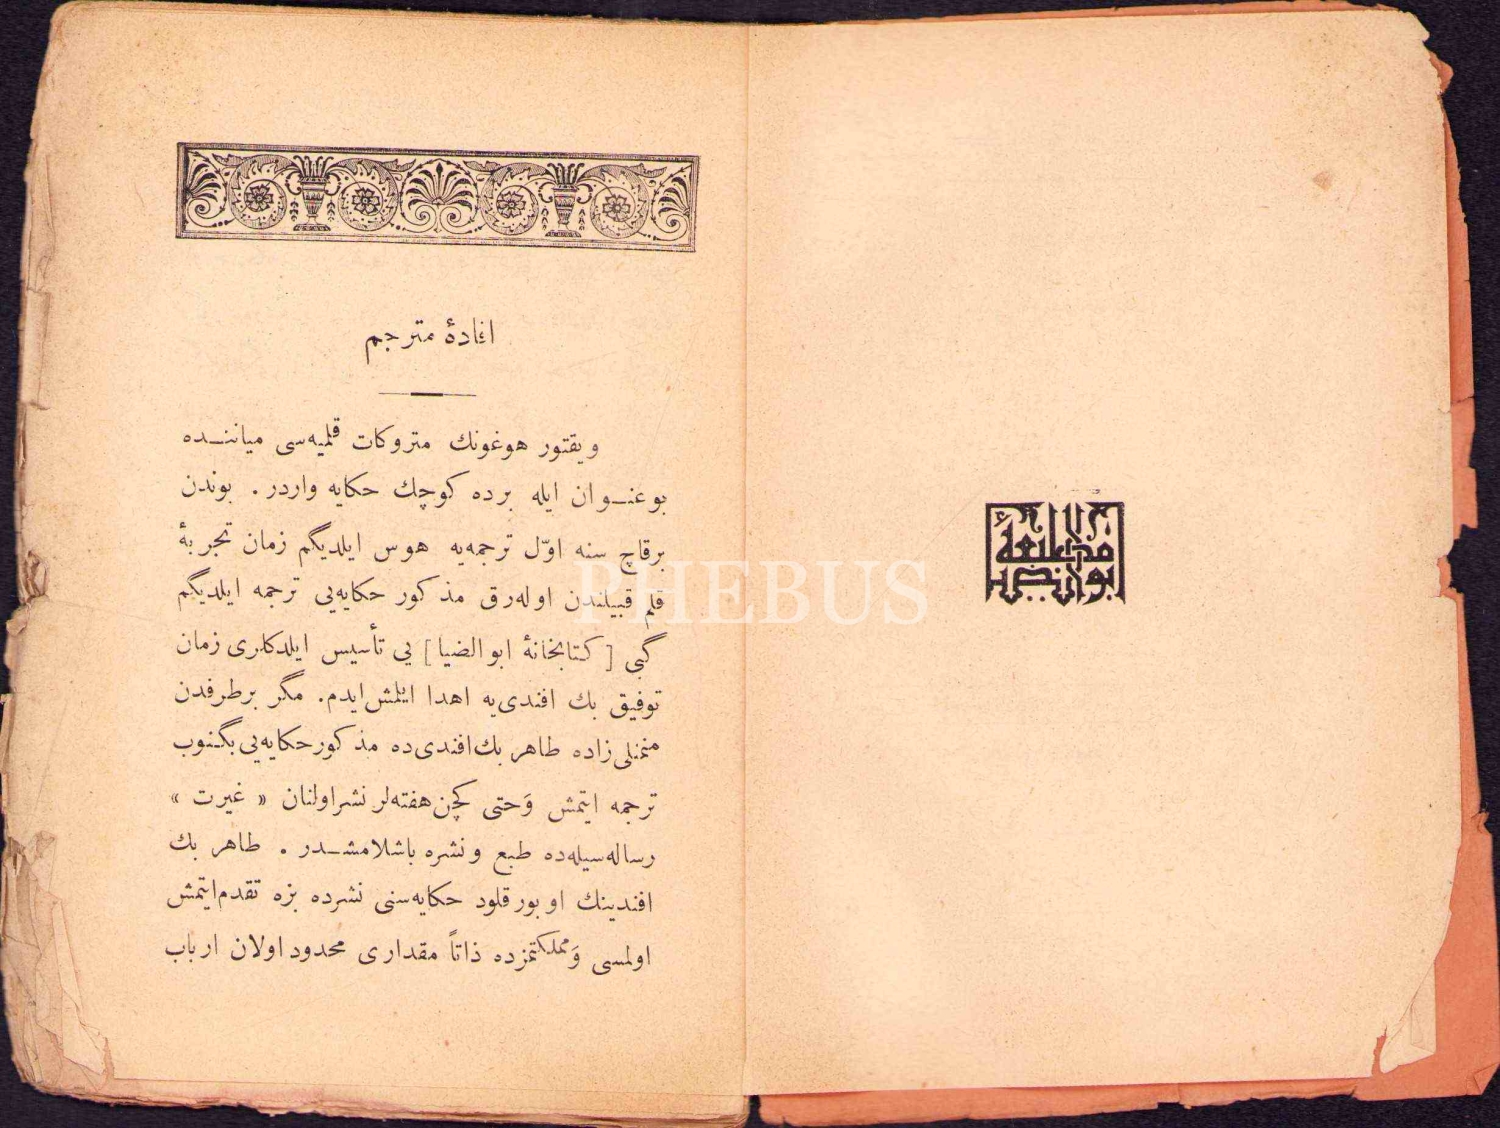 مطبعهٔ ابوالضیا
افادهٔ مترجم
ویقتور هوغونك متروكات قلمیه‌سی میاننـده
بو عنـوان ایله برده كوچك حكایه واردر. بوندن
برقاچ سنه اوّل ترجمه‌یه هوس ایلدیگم زمان تجربهٔ
قلم قبیلندن اوله‌رق مذكور حكایه‌یی ترجمه ایلدیگم
گبی [كتابخانهٔ ابوالضیا] یی تأسیس ایلدكلری زمان
توفیق بك افندی‌یه اهدا ایلمش ایدم. مگر برطرفدن
منمنلی‌زاده طاهر بك افندی‌ده مذكور حكایه‌یی بگنوب
ترجمه ایتمش وَحتی كچن هفته‌لر نشر اولنان « غیرت »
رساله‌سیله‌ده طبع ونشره باشلامشـدر . طاهر بك
افندینك او بورقلود حكایه‌سنی نشرده بزه تقدم ایتمش
اولمسی وَمملكتمزده ذاتاً مقداری محدود اولان ارباب
PHEBUS